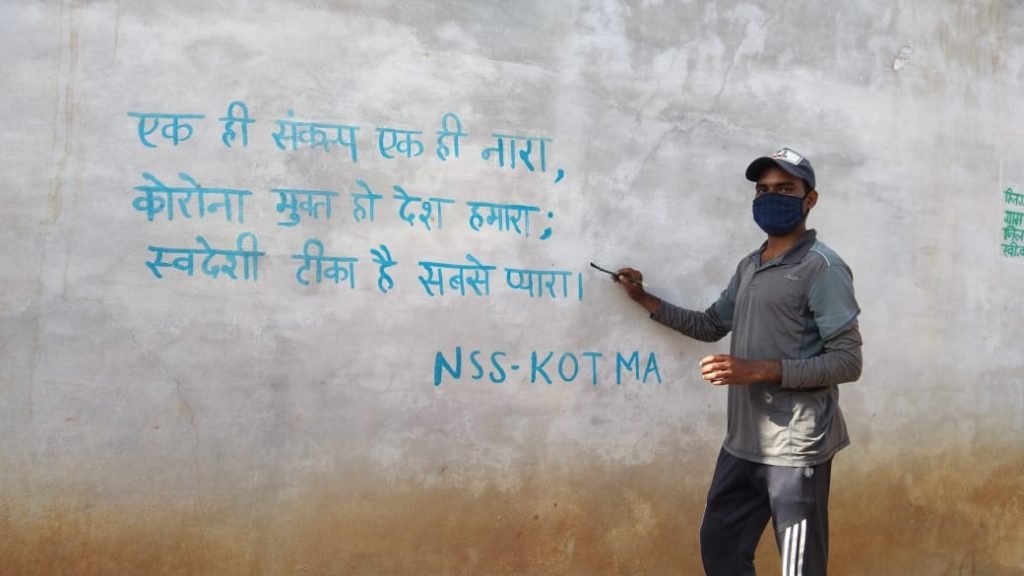 एक ही संकल्प एक ही नारा,
कोरोना मुक्त हो देश हमारा;
स्वदेशी टीका है सबसे प्यारा।
NSS-KOTMA